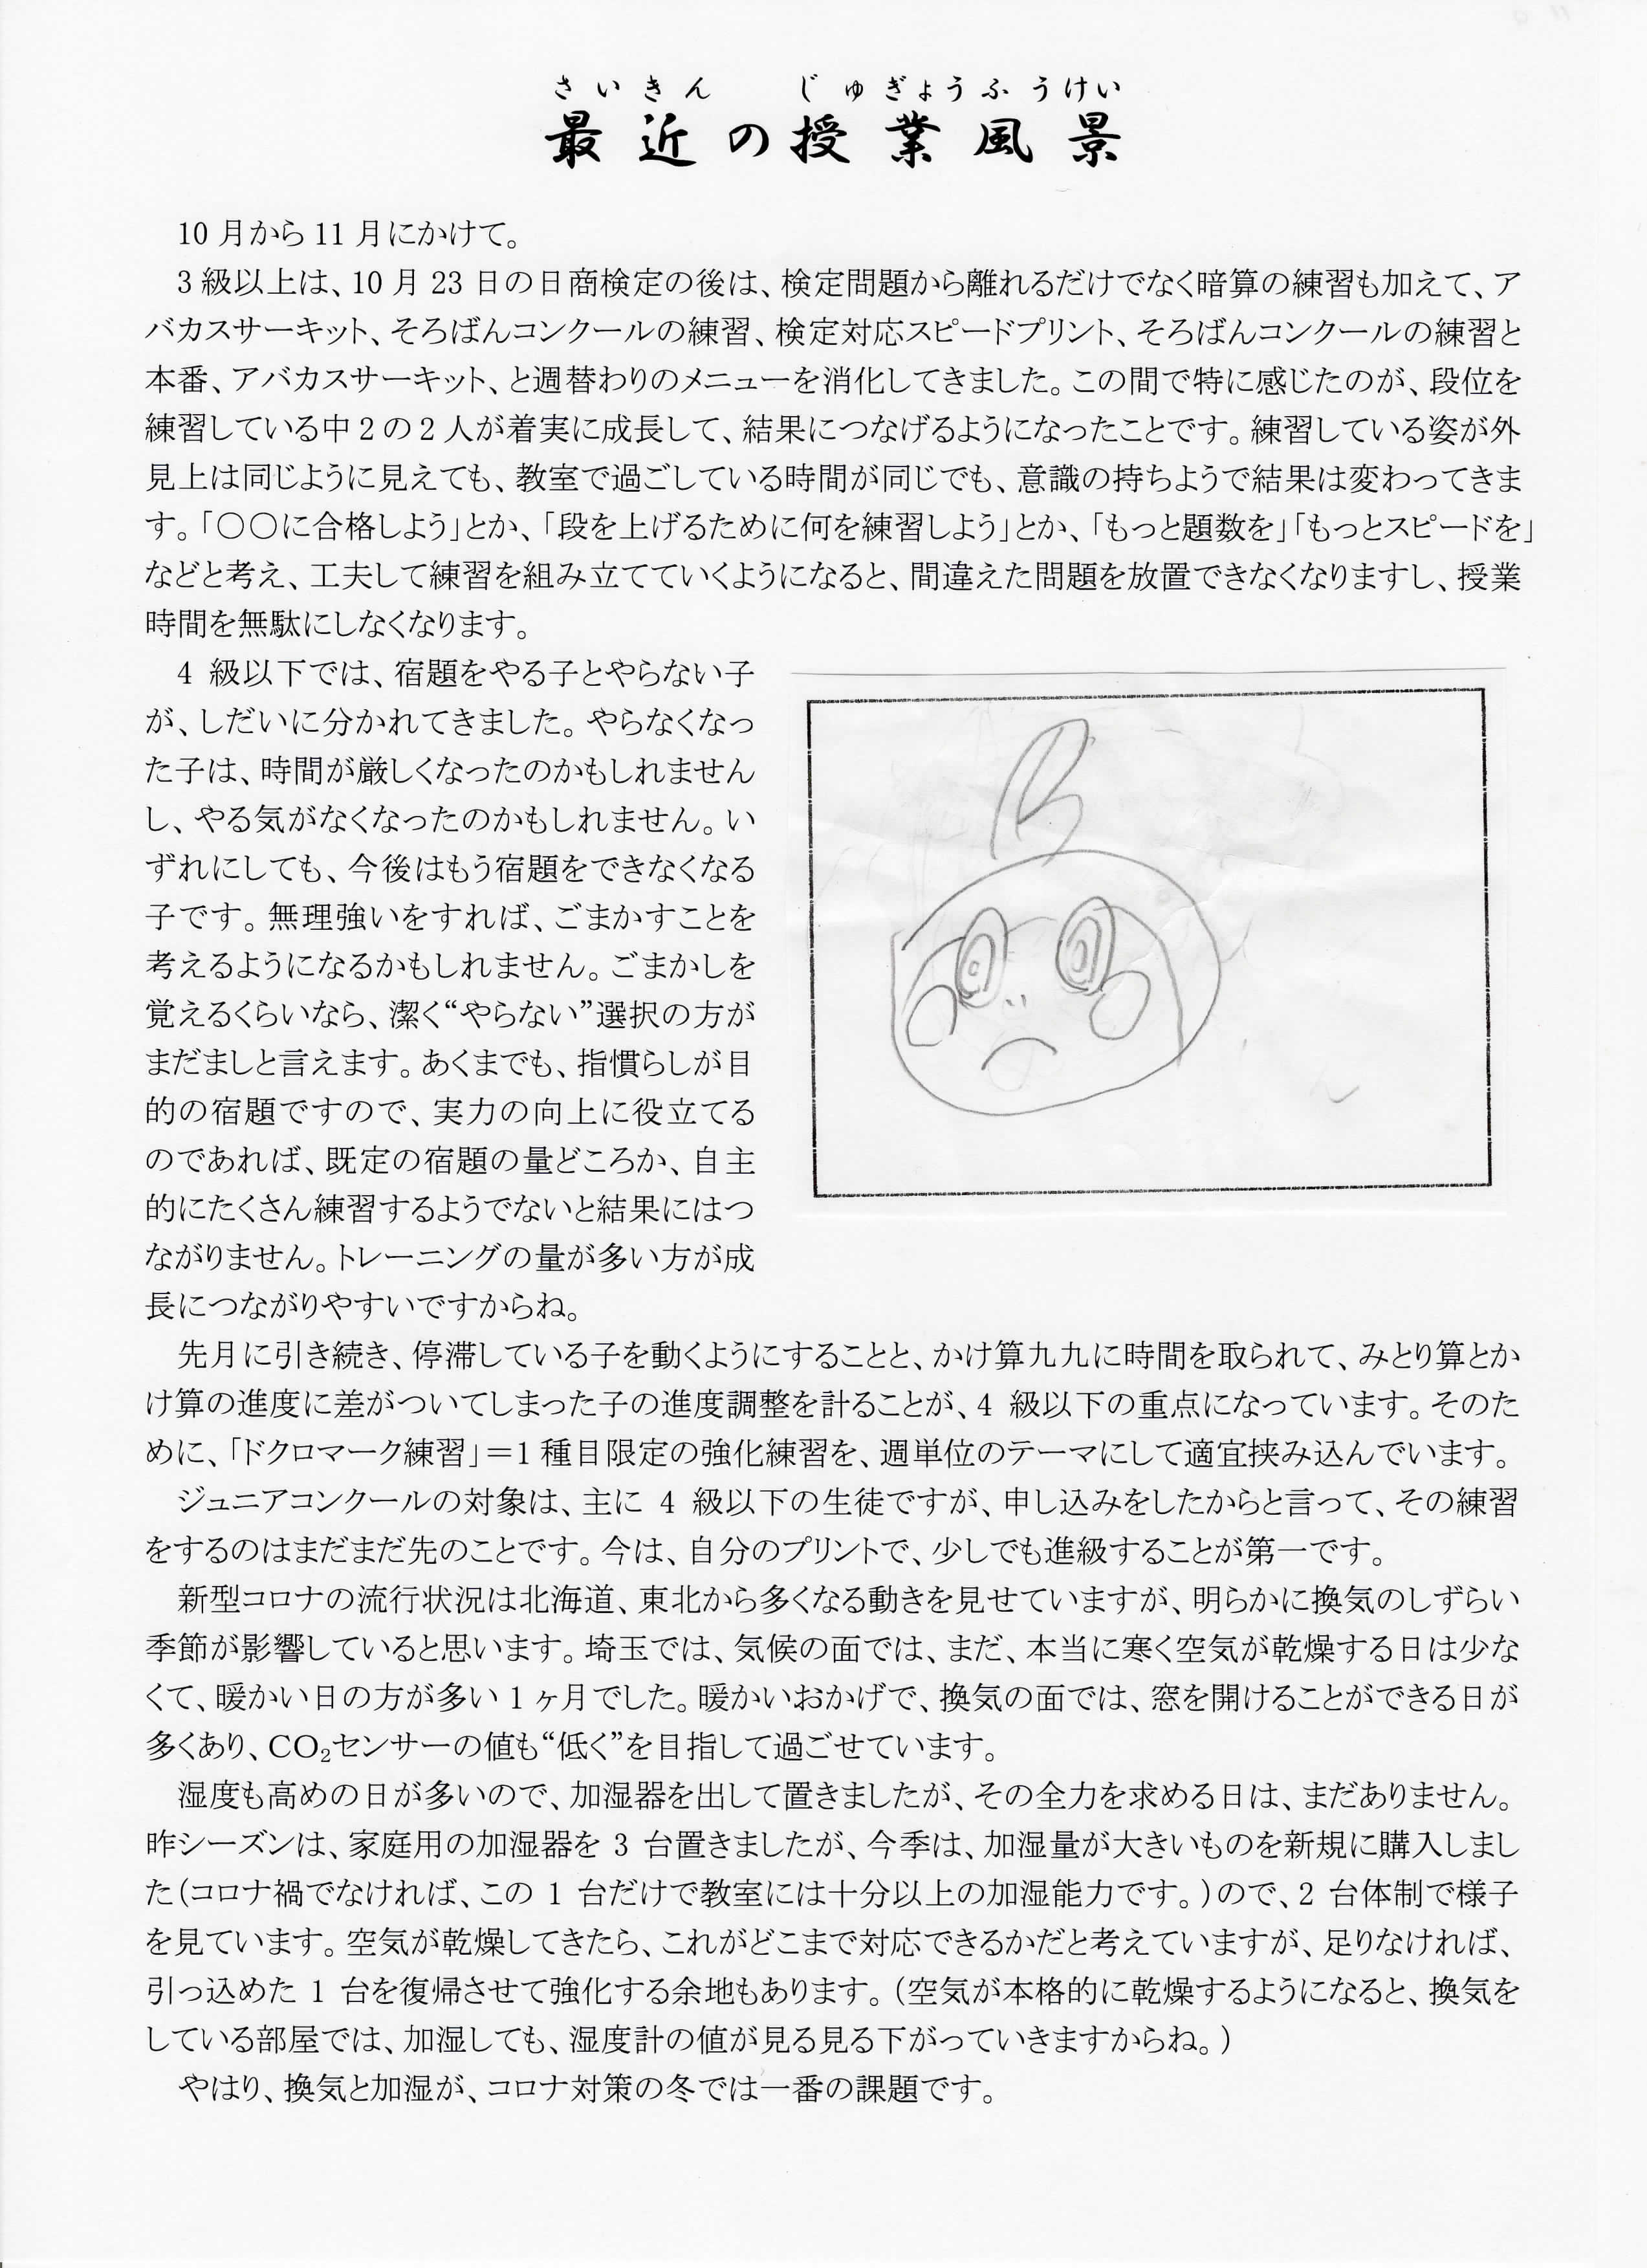 さいきん じゅぎょうふうけい
最近の授業風景
10月から11月にかけて。
3級以上は、10月23日の日商検定の後は、検定問題から離れるだけでなく暗算の練習も加えて、ア
バカスサーキット、そろばんコンクールの練習、検定対応スピードプリント、そろばんコンクールの練習と
本番、アバカスサーキット、と週替わりのメニューを消化してきました。この間で特に感じたのが、段位を
練習している中2の2人が着実に成長して、結果につなげるようになったことです。練習している姿が外
見上は同じように見えても、教室で過ごしている時間が同じでも、意識の持ちようで結果は変わってきま
す。「〇〇に合格しよう」とか、「段を上げるために何を練習しよう」とか、「もっと題数を」「もっとスピードを」
などと考え、工夫して練習を組み立てていくようになると、間違えた問題を放置できなくなりますし、授業
時間を無駄にしなくなります。
4級以下では、宿題をやる子とやらない子
が、しだいに分かれてきました。やらなくなっ
た子は、時間が厳しくなったのかもしれません
し、やる気がなくなったのかもしれません。い
ずれにしても、今後はもう宿題をできなくなる
子です。無理強いをすれば、ごまかすことを
考えるようになるかもしれません。ごまかしを
覚えるくらいなら、潔く“やらない”選択の方が
まだましと言えます。あくまでも、指慣らしが目
的の宿題ですので、実力の向上に役立てる
のであれば、既定の宿題の量どころか、自主
的にたくさん練習するようでないと結果にはつ
ながりません。トレーニングの量が多い方が成
長につながりやすいですからね。
先月に引き続き、停滞している子を動くようにすることと、かけ算九九に時間を取られて、みとり算とか
け算の進度に差がついてしまった子の進度調整を計ることが、4級以下の重点になっています。そのた
めに、「ドクロマーク練習」＝1種目限定の強化練習を、週単位のテーマにして適宜挟み込んでいます。
ジュニアコンクールの対象は、主に4級以下の生徒ですが、申し込みをしたからと言って、その練習
をするのはまだまだ先のことです。今は、自分のプリントで、少しでも進級することが第一です。
新型コロナの流行状況は北海道、東北から多くなる動きを見せていますが、明らかに換気のしずらい
季節が影響していると思います。埼玉では、気候の面では、まだ、本当に寒く空気が乾燥する日は少な
くて、暖かい日の方が多い1ヶ月でした。暖かいおかげで、換気の面では、窓を開けることができる日が
多くあり、CO₂センサーの値も“低く”を目指して過ごせています。
湿度も高めの日が多いので、加湿器を出して置きましたが、その全力を求める日は、まだありません。
昨シーズンは、家庭用の加湿器を3台置きましたが、今季は、加湿量が大きいものを新規に購入しまし
た（コロナ禍でなければ、この1台だけで教室には十分以上の加湿能力です。）ので、2台体制で様子
を見ています。空気が乾燥してきたら、これがどこまで対応できるかだと考えていますが、足りなければ、
引っ込めた1台を復帰させて強化する余地もあります。（空気が本格的に乾燥するようになると、換気を
している部屋では、加湿しても、湿度計の値が見る見る下がっていきますからね。）
やはり、換気と加湿が、コロナ対策の冬では一番の課題です。